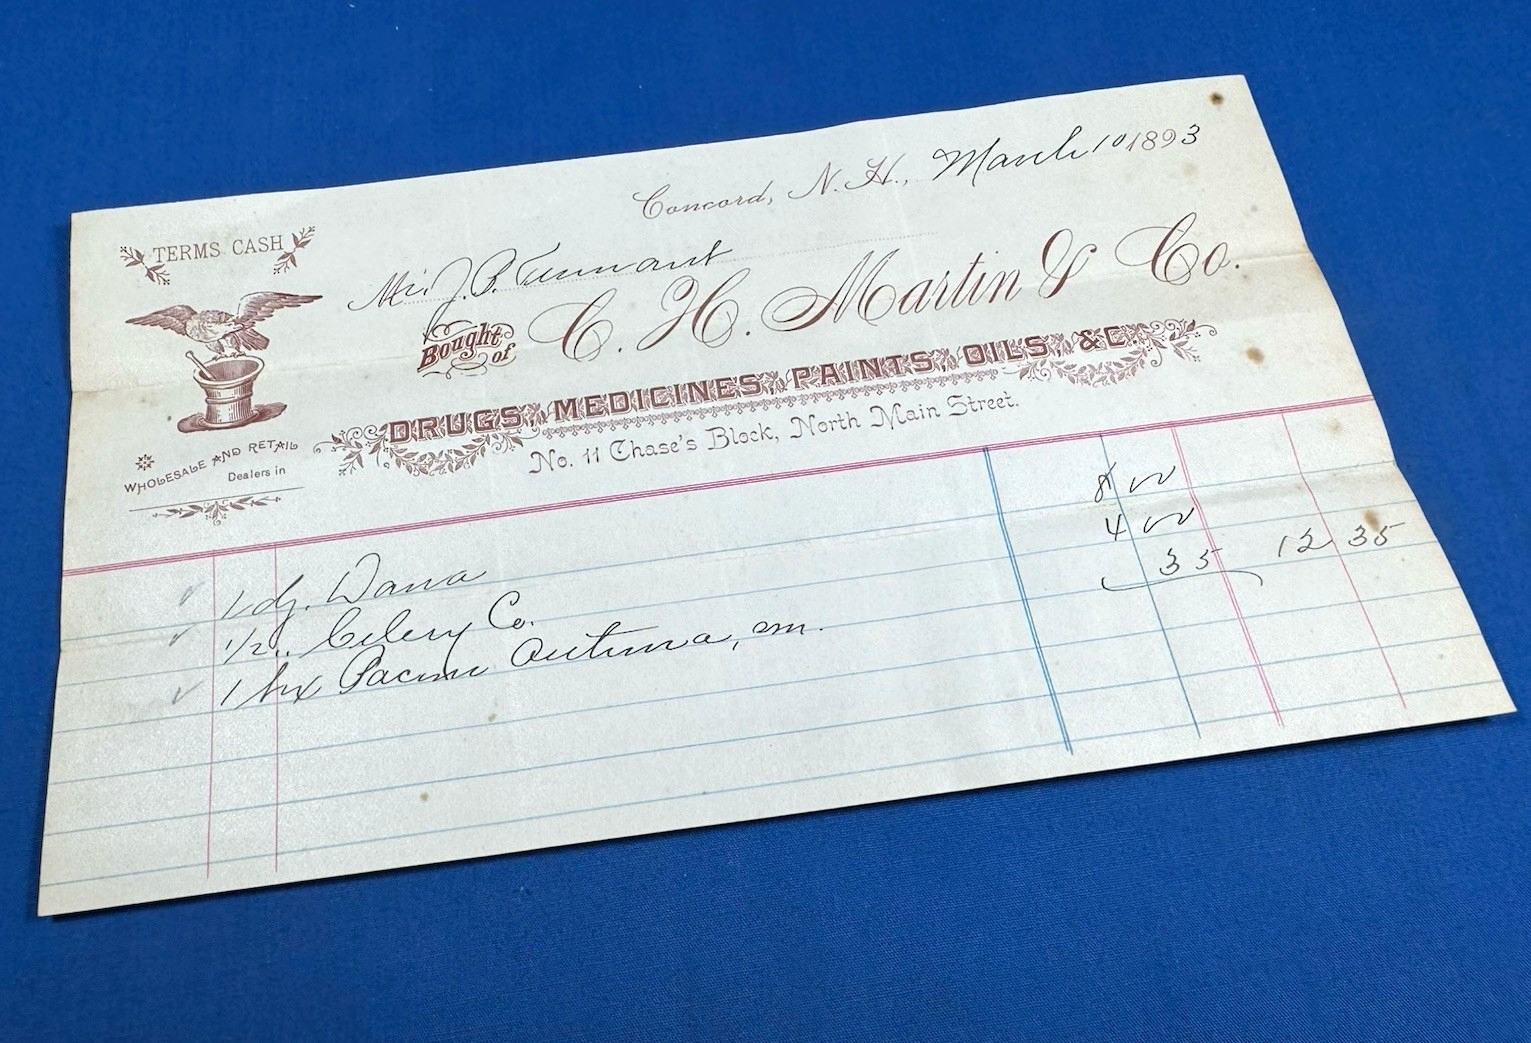 Concord, N. H., March 10 1893
TERMS CASH
Mr. J. B. Tennant
Bought of C. H. Martin & Co.
DRUGS, MEDICINES, PAINTS, OILS, &C.
No. 11 Chase's Block, North Main Street.
WHOLESALE AND RETAIL
Dealers in
1 dz. Dana 8 00
1/2 " Celery Co. 4 00
1 bx sm. 35 12 35